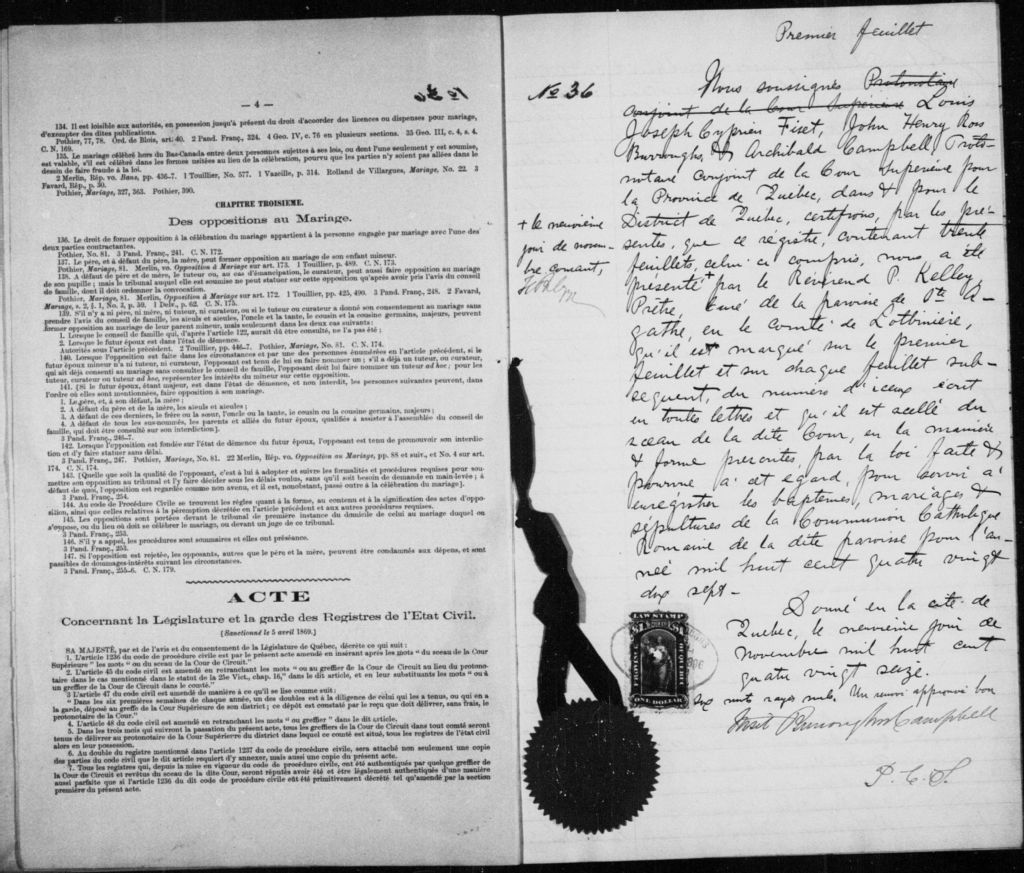 — 4 —
134. Il est loisible aux autorités, en possession jusqu'à présent du droit d'accorder des licences ou dispenses pour mariage,
d'exempter des dites publications.
Pothier, 77, 78. Ord. de Blois, art. 40. 2 Pand. Franç., 324. 4 Geo. IV, c. 76 en plusieurs sections. 35 Geo. III, c. 4, s. 4.
C. N. 169.
135. Le mariage célébré hors du Bas-Canada entre deux personnes sujettes à ses lois, ou dont l'une seulement y est soumise,
est valable, s'il est célébré dans les formes usitées au lieu de la célébration, pourvu que les parties n'y soient pas allées dans le
dessein de faire fraude à la loi.
2 Merlin, Rép. vo. Bans, pp. 436-7. 1 Touillier, No. 577. 1 Vazeille, p. 314. Rolland de Villargues, Mariage, No. 22. 3
Favard, Rép., p. 30.
Pothier, Mariage, 327, 363. Pothier, 390.
CHAPITRE TROISIEME.
Des oppositions au Mariage.
136. Le droit de former opposition à la célébration du mariage appartient à la personne engagée par mariage avec l'une des
deux parties contractantes.
Pothier, No. 81. 3 Pand. Franç., 241. C. N. 172.
137. Le père, et à défaut du père, la mère, peut former opposition au mariage de son enfant mineur.
Pothier, Mariage, 81. Merlin, vo. Opposition à Mariage sur art. 173. 1 Touillier, p. 489. C. N. 173.
138. A défaut de père et de mère, le tuteur ou, au cas d'émancipation, le curateur, peut aussi faire opposition au mariage
de son pupille; mais le tribunal auquel elle est soumise ne peut statuer sur cette opposition qu'après avoir pris l'avis du conseil
de famille, dont il doit ordonner la convocation.
Pothier, Mariage, 81. Merlin, Opposition à Mariage sur art. 172. 1 Touillier, pp. 425, 490. 3 Pand. Franç., 248. 2 Favard,
Mariage, s. 2, § 1, No. 3, p. 59. 1 Delv., p. 62. C. N. 175.
139. S'il n'y a ni père, ni mère, ni tuteur, ni curateur, ou si le tuteur ou curateur a donné son consentement au mariage sans
prendre l'avis du conseil de famille, les aïeuls et aïeules, l'oncle et la tante, le cousin et la cousine germains, majeurs, peuvent
former opposition au mariage de leur parent mineur, mais seulement dans les deux cas suivants:
1. Lorsque le conseil de famille qui, d'après l'article 122, aurait dû être consulté, ne l'a pas été;
2. Lorsque le futur époux est dans l'état de démence.
Autorités sous l'article précédent. 2 Touillier, pp. 446-7. Pothier, Mariage, No. 81. C. N. 174.
140. Lorsque l'opposition est faite dans les circonstances et par une des personnes énumérées en l'article précédent, si le
futur époux mineur n'a ni tuteur, ni curateur, l'opposant est tenu de lui en faire nommer un; s'il a déjà un tuteur, ou curateur,
qui ait déjà consenti au mariage sans consulter le conseil de famille, l'opposant doit lui faire nommer un tuteur ad hoc; pour les
tuteur, curateur ou tuteur ad hoc, représenter les intérêts du mineur sur cette opposition.
141. [Si le futur époux, étant majeur, est dans l'état de démence, et non interdit, les personnes suivantes peuvent, dans
l'ordre où elles sont mentionnées, faire opposition à son mariage.
1. Le père, et, à son défaut, la mère;
2. A défaut du père et de la mère, les aïeuls et aïeules;
3. A défaut de ces derniers, le frère ou la sœur, l'oncle ou la tante, le cousin ou la cousine germains, majeurs;
4. A défaut de tous les sus-nommés, les parents et alliés du futur époux, qualifiés à assister à l'assemblée du conseil de
famille, qui doit être consulté sur son interdiction].
3 Pand. Franç., 246-7.
142. Lorsque l'opposition est fondée sur l'état de démence du futur époux, l'opposant est tenu de promouvoir son interdic-
tion et d'y faire statuer sans délai.
3 Pand. Franç., 247. Pothier, Mariage, No. 81. 22 Merlin, Rép. vo. Opposition au Mariage, pp. 88 et suiv., et No. 4 sur art.
174. C. N. 174.
143. [Quelle que soit la qualité de l'opposant, c'est à lui à adopter et suivre les formalités et procédures requises pour sou-
mettre son opposition au tribunal et l'y faire décider sous les délais voulus, sans qu'il soit besoin de demande en main-levée; à
défaut de quoi, l'opposition est regardée comme non avenue, et il est, nonobstant, passé outre à la célébration du mariage].
3 Pand. Franç., 254.
144. Au code de Procédure Civile se trouvent les règles quant à la forme, au contenu et à la signification des actes d'oppo-
sition, ainsi que celles relatives à la péremption décrétée en l'article précédent et aux autres procédures requises.
145. Les oppositions sont portées devant le tribunal de première instance du domicile de celui au mariage duquel on
s'oppose, ou du lieu où doit se célébrer le mariage, ou devant un juge de ce tribunal.
3 Pand. Franç., 253.
146. S'il y a appel, les procédures sont sommaires et elles ont préséance.
3 Pand. Franç., 253.
147. Si l'opposition est rejetée, les opposants, autres que le père et la mère, peuvent être condamnés aux dépens, et sont
passibles de dommages-intérêts suivant les circonstances.
3 Pand. Franç., 255-6. C. N. 179.
ACTE
Concernant la Législature et la garde des Registres de l'Etat Civil.
[Sanctionné le 5 avril 1869.]
SA MAJESTÉ, par et de l'avis et du consentement de la Législature de Québec, décrète ce qui suit:
1. L'article 1236 du code de procédure civile est par le présent acte amendé en insérant après les mots "du sceau de la Cour
Supérieure" les mots "ou du sceau de la Cour de Circuit."
2. L'article 45 du code civil est amendé en retranchant les mots "ou au greffier de la Cour de Circuit au lieu du protono-
taire dans le cas mentionné dans le statut de la 25e Vict., chap. 16," dans le dit article, et en leur substituant les mots "ou à
un greffier de la Cour de Circuit dans le comté."
3. L'article 47 du code civil est amendé de manière à ce qu'il se lise comme suit:
"Dans les six premières semaines de chaque année, un des doubles est à la diligence de celui qui les a tenus, ou qui en a
la garde, déposé au greffe de la Cour Supérieure de son district; ce dépôt est constaté par le reçu que doit délivrer, sans frais, le
protonotaire de la Cour."
4. L'article 48 du code civil est amendé en retranchant les mots "ou greffier" dans le dit article.
5. Dans les trois mois qui suivront la passation du présent acte, tous les greffiers de la Cour de Circuit dans tout comté seront
tenus de délivrer au protonotaire de la Cour Supérieure du district dans lequel ce comté est situé, tous les registres de l'état civil
alors en leur possession.
6. Au double du registre mentionné dans l'article 1237 du code de procédure civile, sera attaché non seulement une copie
des parties du code civil que le dit article requiert d'y annexer, mais aussi une copie du présent acte.
7. Tous les registres qui, depuis la mise en vigueur du code de procédure civile, ont été authentiqués par quelque greffier de
la Cour de Circuit et revêtus du sceau de la dite Cour, seront réputés avoir été et être légalement authentiqués d'une manière
aussi parfaite que si l'article 1236 du dit code de procédure civile eût été primitivement décrété tel qu'amendé par la section
première du présent acte.
Premier feuillet
No 36
Nous soussignés Protonotaire
conjoint de la Cour Supérieure Louis
Joseph Cyprien Fiset, John Henry Ross
Burroughs, & Archibald Campbell Proto-
notaire Conjoint de la Cour Supérieure pour
la Province de Québec, dans & pour le
District de Québec, certifions, par les pré-
sentes, que ce régistre, contenant trente
feuillets, celui-ci compris, nous a été
présenté + par le Révérend P. Kelley
Prêtre, Curé de la paroisse de Ste A-
gathe, en le comté de Lotbinière,
qu'il est marqué sur le premier
feuillet et sur chaque feuillet sub-
séquent, du numéro d'iceux écrit
en toutes lettres et qu'il est scellé du
sceau de la dite Cour, en la manière
& forme prescrites par la loi faite &
pourvue à cet égard, pour servir à
enregistrer les baptêmes, mariages &
sépultures de la Communion Catholique
Romaine de la dite paroisse pour l'an-
née mil huit cent quatre vingt
dix sept -
+ le neuvième
jour de novem-
bre courant,
Donné en la cité de
Québec, le neuvième jour de
novembre mil huit cent
quatre vingt seize.
Six mots rayés nuls. Un renvoi approuvé bon
Fiset Burroughs Campbell
P. C. S.
LAW STAMP
PROVINCE
OF QUEBEC
ONE DOLLAR